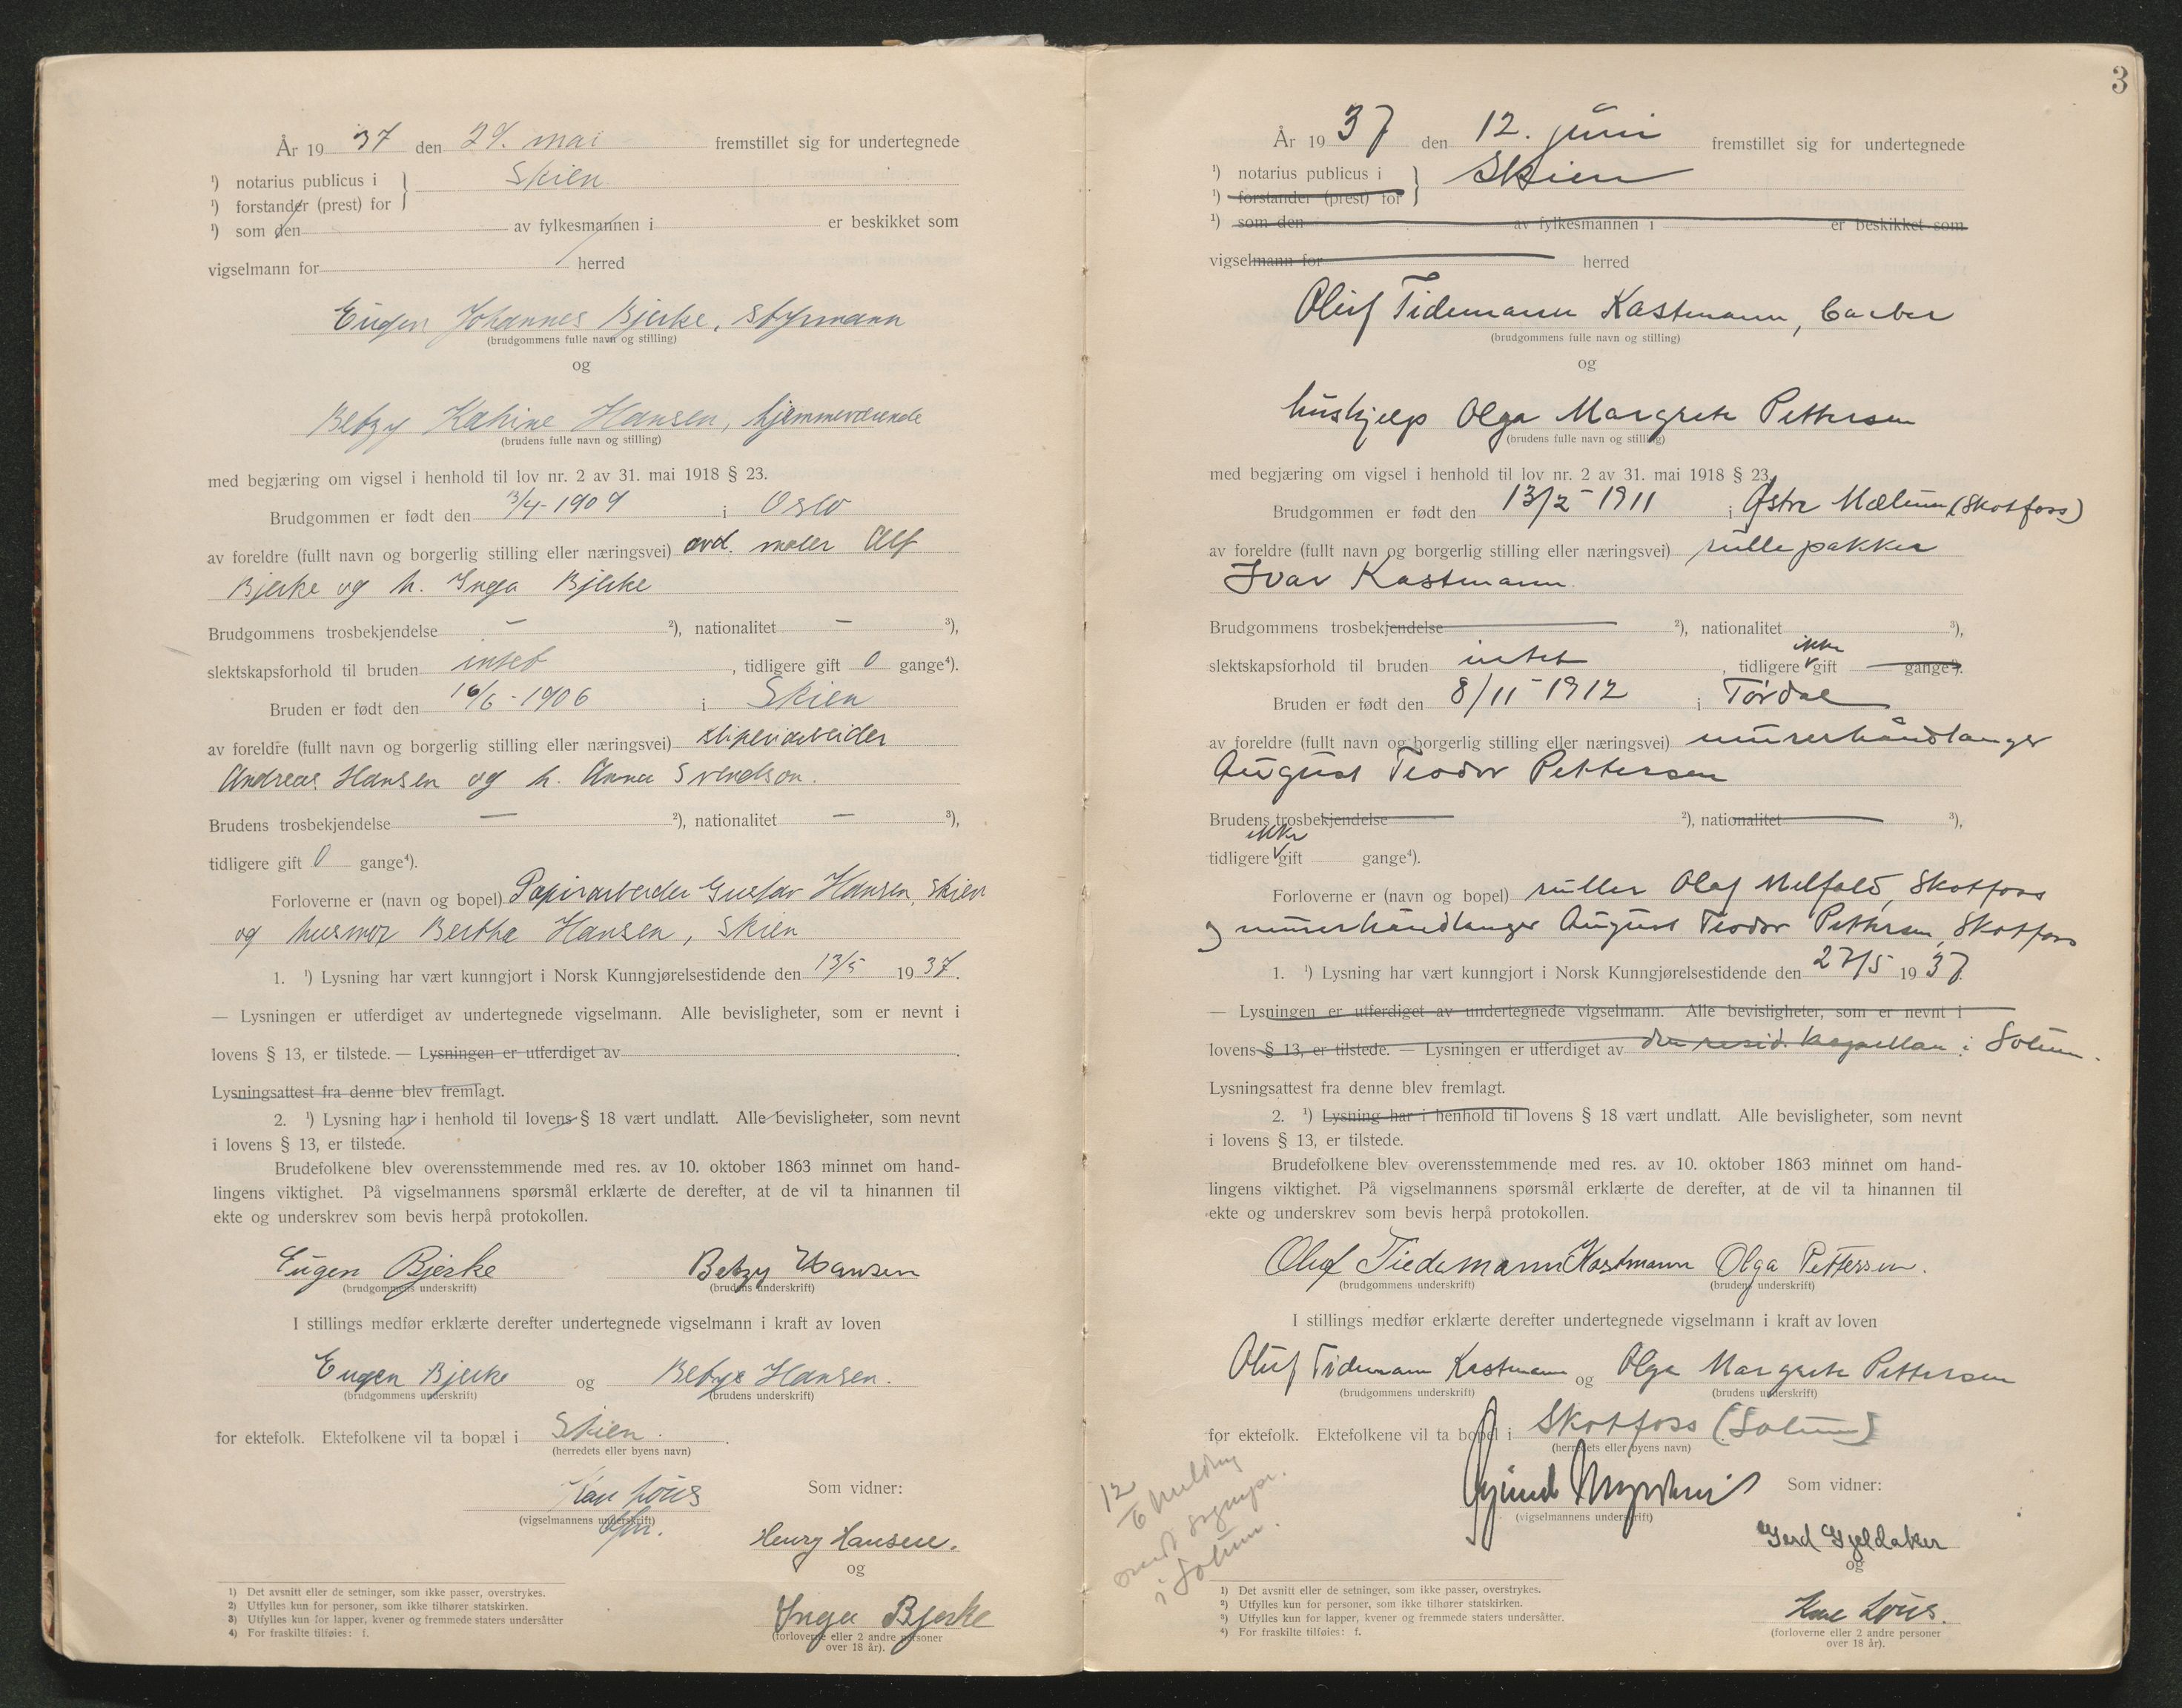 År 19 37 den 29. mai fremstillet sig for undertegnede
¹) notarius publicus i } Skien
¹) forstander (prest) for
¹) som den av fylkesmannen i er beskikket som
vigselmann for herred
Eugen Johannes Bjerke, styrmann
(brudgommens fulle navn og stilling)
og
Betzy Kathine Hansen, hjemmeværende
(brudens fulle navn og stilling)
med begjæring om vigsel i henhold til lov nr. 2 av 31. mai 1918 § 23.
Brudgommen er født den 13/4-1909 i Oslo
av foreldre (fullt navn og borgerlig stilling eller næringsvei) avd. maler Alf
Bjerke og h. Inga Bjerke
Brudgommens trosbekjendelse — ²), nationalitet — ³),
slektskapsforhold til bruden intet, tidligere gift 0 gange⁴).
Bruden er født den 16/6-1906 i Skien
av foreldre (fullt navn og borgerlig stilling eller næringsvei) sliperiarbeider
Andreas Hansen og h. Anna Svendson.
Brudens trosbekjendelse — ²), nationalitet — ³),
tidligere gift 0 gange⁴).
Forloverne er (navn og bopel) Papirarbeider Gustav Hansen, Skien
og husmor Bertha Hansen, Skien
1. ¹) Lysning har vært kunngjort i Norsk Kunngjørelsestidende den 13/5 1937.
— Lysningen er utferdiget av undertegnede vigselmann. Alle bevisligheter, som er nevnt i
lovens § 13, er tilstede. — Lysningen er utferdiget av
Lysningsattest fra denne blev fremlagt.
2. ¹) Lysning har i henhold til lovens § 18 vært undlatt. Alle bevisligheter, som nevnt
i lovens § 13, er tilstede.
Brudefolkene blev overensstemmende med res. av 10. oktober 1863 minnet om hand-
lingens viktighet. På vigselmannens spørsmål erklærte de derefter, at de vil ta hinannen til
ekte og underskrev som bevis herpå protokollen.
Eugen Bjerke Betzy Hansen
(brudgommens underskrift) (brudens underskrift)
I stillings medfør erklærte derefter undertegnede vigselmann i kraft av loven
Eugen Bjerke og Betzy Hansen.
(brudgommens underskrift) (brudens underskrift)
for ektefolk. Ektefolkene vil ta bopæl i Skien.
(herredets eller byens navn)
Kåre Lous Som vidner:
(vigselmannens underskrift)
Henry Hansen.
og
Inga Bjerke
(forloverne eller 2 andre personer
over 18 år).
1) Det avsnitt eller de setninger, som ikke passer, overstrykes.
2) Utfylles kun for personer, som ikke tilhører statskirken.
3) Utfylles kun for lapper, kvener og fremmede staters undersåtter
4) For fraskilte tilføies: f.
3
År 19 37 den 12. juni fremstillet sig for undertegnede
¹) notarius publicus i } Skien
¹) forstander (prest) for
¹) som den av fylkesmannen i er beskikket som
vigselmann for herred
Oluf Tidemann Kastmann, barber
(brudgommens fulle navn og stilling)
og
hushjelp Olga Margrete Pettersen
(brudens fulle navn og stilling)
med begjæring om vigsel i henhold til lov nr. 2 av 31. mai 1918 § 23.
Brudgommen er født den 13/2-1911 i Østre Mælum (Skotfoss)
av foreldre (fullt navn og borgerlig stilling eller næringsvei) rullepakker
Ivar Kastmann
Brudgommens trosbekjendelse ²), nationalitet ³),
slektskapsforhold til bruden intet, tidligere ikke gift gange⁴).
Bruden er født den 8/11-1912 i Tørdal
av foreldre (fullt navn og borgerlig stilling eller næringsvei) murerhåndlanger
August Teodor Pettersen
Brudens trosbekjendelse ²), nationalitet ³),
tidligere ikke gift gange⁴).
Forloverne er (navn og bopel) ruller Olaf Melfald, Skotfoss
og murerhåndlanger August Teodor Pettersen, Skotfoss
1. ¹) Lysning har vært kunngjort i Norsk Kunngjørelsestidende den 27/5 1937.
— Lysningen er utferdiget av undertegnede vigselmann. Alle bevisligheter, som er nevnt i
lovens § 13, er tilstede. — Lysningen er utferdiget av den resid. kapellan i Solum.
Lysningsattest fra denne blev fremlagt.
2. ¹) Lysning har i henhold til lovens § 18 vært undlatt. Alle bevisligheter, som nevnt
i lovens § 13, er tilstede.
Brudefolkene blev overensstemmende med res. av 10. oktober 1863 minnet om hand-
lingens viktighet. På vigselmannens spørsmål erklærte de derefter, at de vil ta hinannen til
ekte og underskrev som bevis herpå protokollen.
Oluf Tiedemann Kastmann Olga Pettersen.
(brudgommens underskrift) (brudens underskrift)
I stillings medfør erklærte derefter undertegnede vigselmann i kraft av loven
Oluf Tidemann Kastmann og Olga Margrete Pettersen
(brudgommens underskrift) (brudens underskrift)
for ektefolk. Ektefolkene vil ta bopel i Skotfoss (Solum)
(herredets eller byens navn)
Som vidner:
(vigselmannens underskrift)
Gerd Gjeldaker
og
Kåre Lous.
(forloverne eller 2 andre personer
over 18 år).
12/6 melding
sendt sognepr.
i Solum.
¹) Det avsnitt eller de setninger, som ikke passer, overstrykes.
²) Utfylles kun for personer, som ikke tilhører statskirken.
³) Utfylles kun for lapper, kvener og fremmede staters undersåtter.
⁴) For fraskilte tilføies: f.